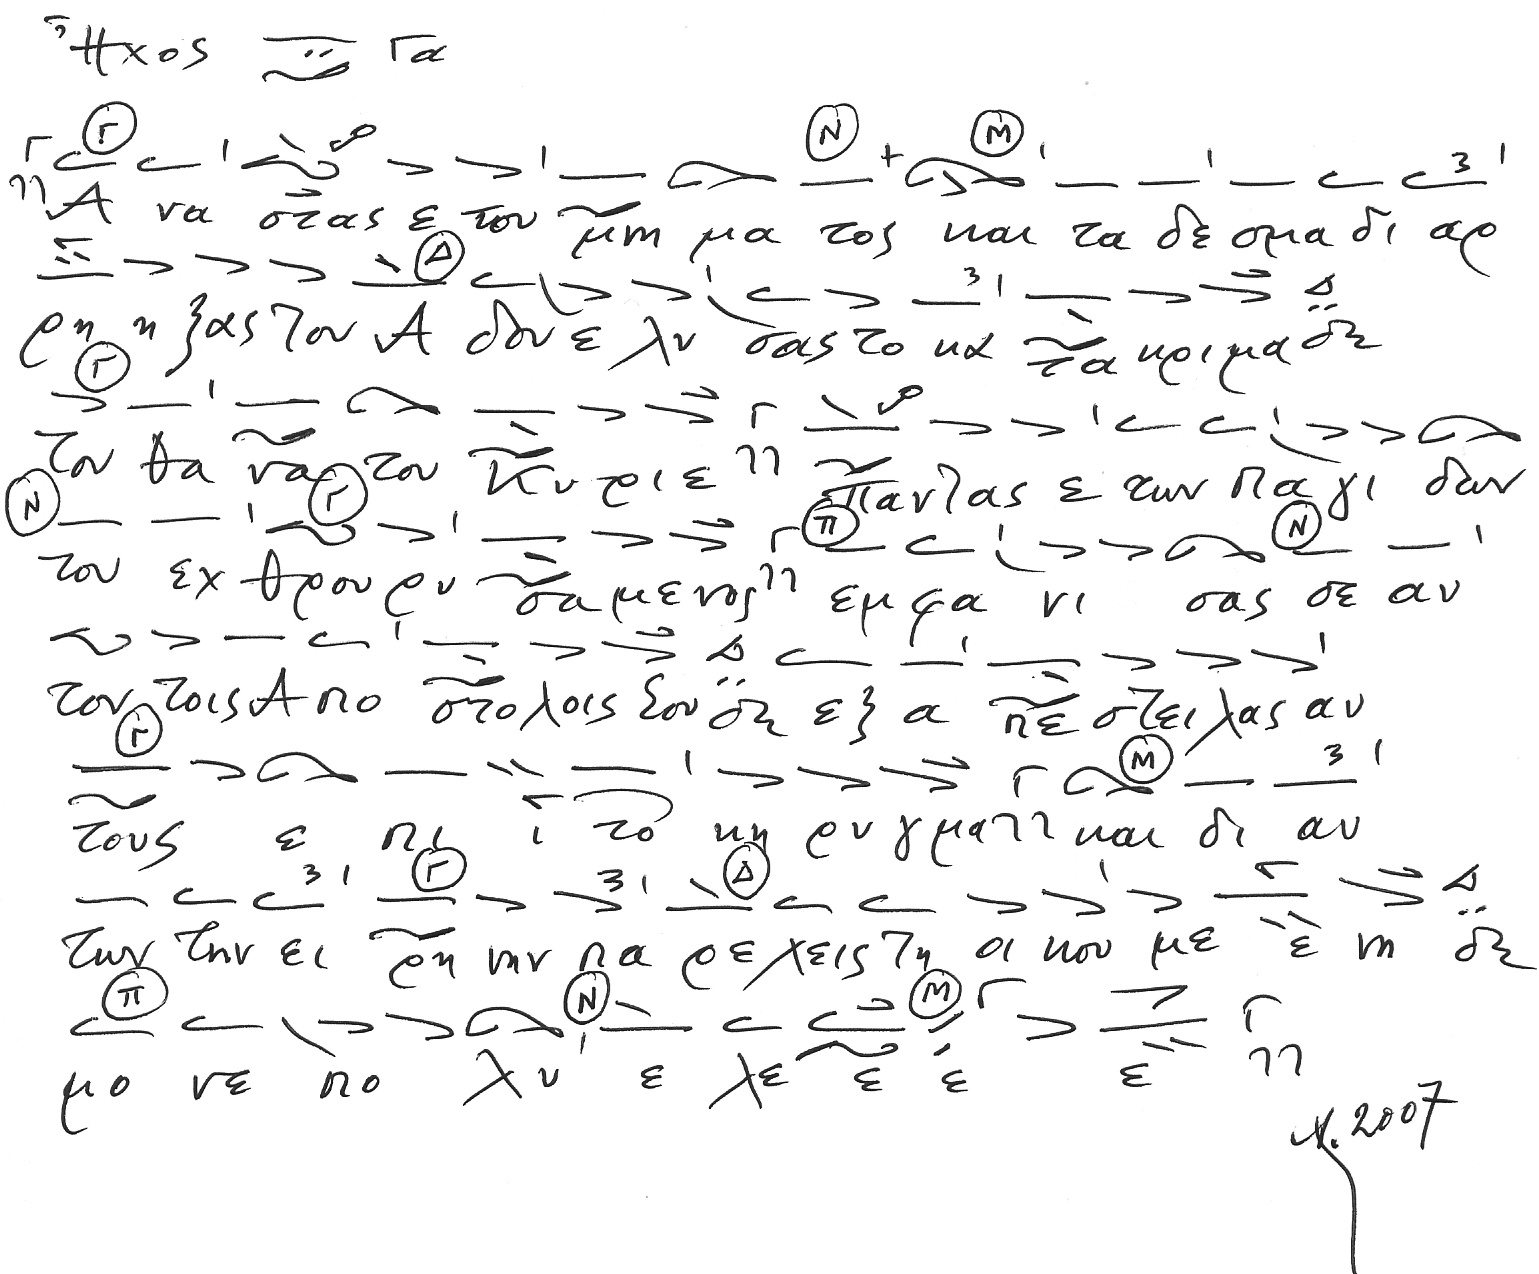 Ἦχος Γα
Α να στας ε του μνη μα τος και τα δε σμα δι αρ
ρη η ξας του Α δου ε λυ σας το κα τα κριμα
του θα να του Κυ ριε παντας ε των πα γι δων
του εχ θρου ρυ σα μενος εμφα νι σας σε αυ
τον τοις Απο στολοις σου εξ α πε στειλας αυ
τους ε πι ι το κη ρυγμα και δι αυ
των την ει ρη νην πα ρεχεις τη οι κου με ε νη
μο νε πο λυ ε λε ε ε ε
2007